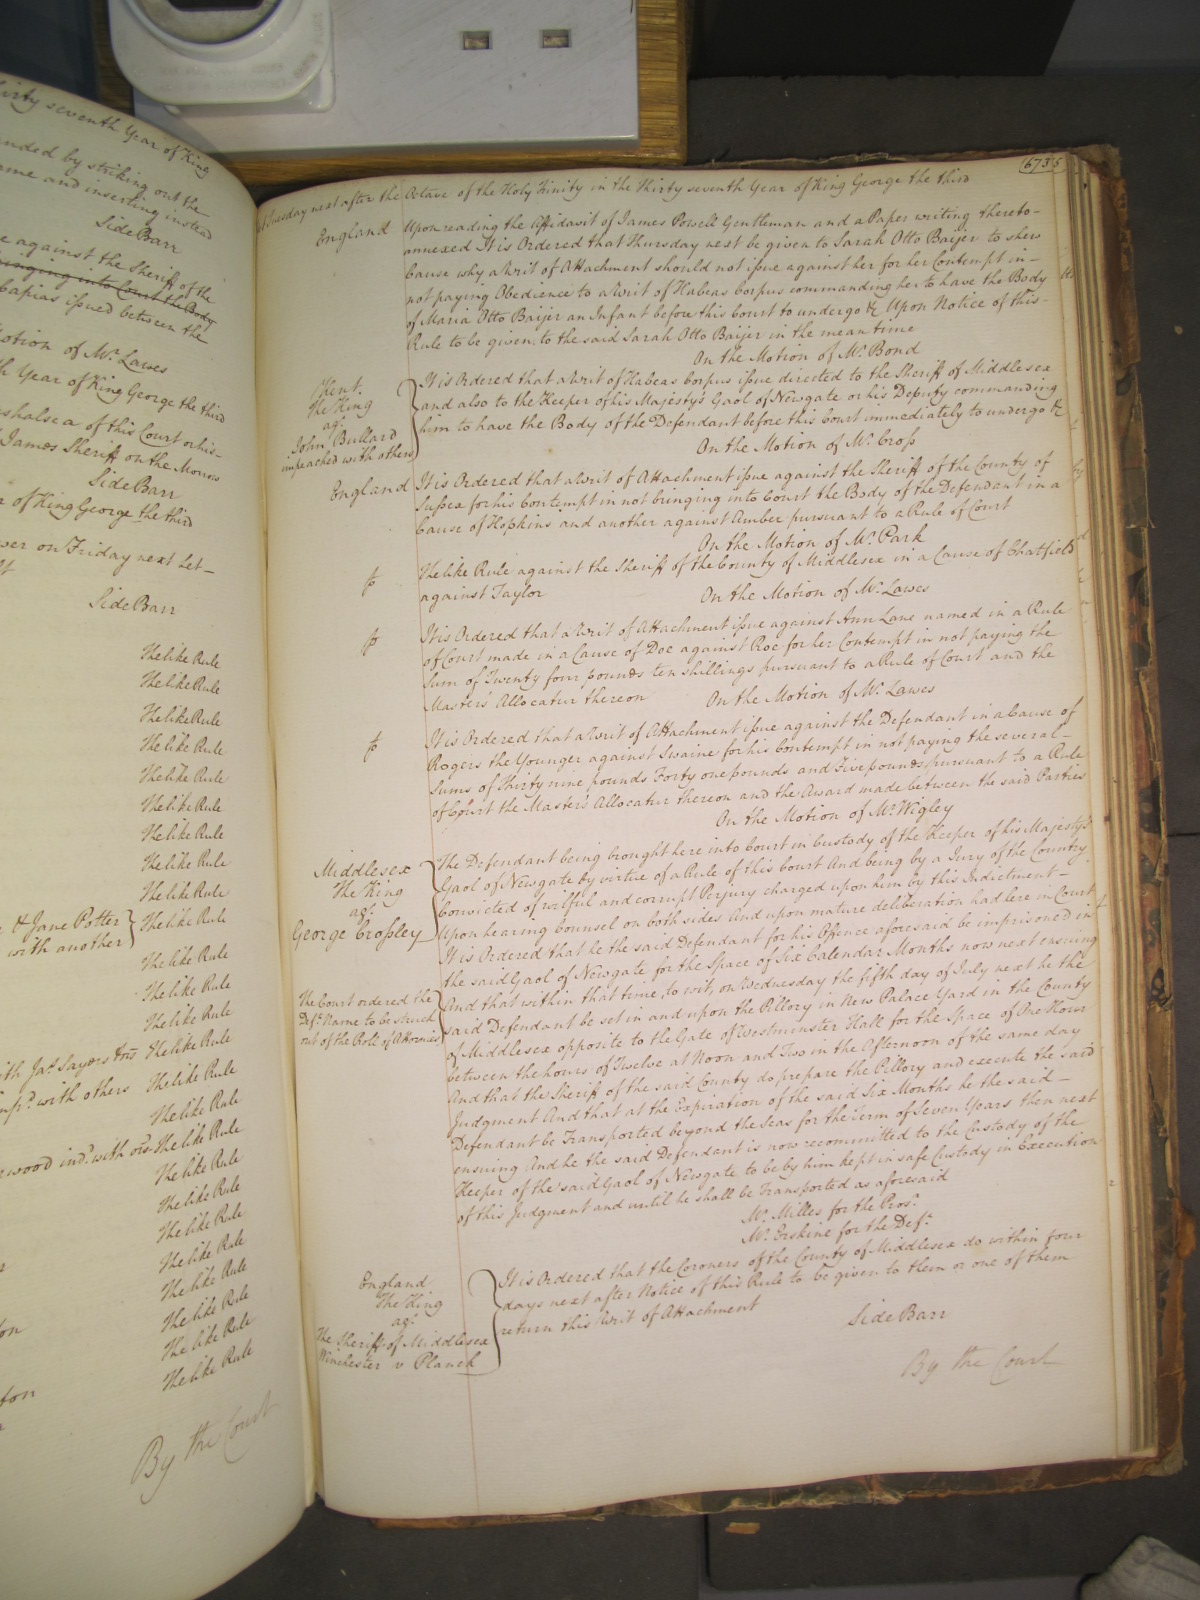 irty seventh Year of King
ended by striking out the
ame and inserting instead
Side Barr
e against the Sheriff of the
bringing into Court the Body
Capias issued between the
Motion of Mr. Lawes
th Year of King George the third
rshalsea of this Court or his-
James Sheriff on the Morrow
Side Barr
r of King George the third
wer on Friday next Let-
Side Barr
The like Rule
The like Rule
The like Rule
The like Rule
The like Rule
The like Rule
The like Rule
The like Rule
The like Rule
& Jane Potter The like Rule
with another
The like Rule
The like Rule
The like Rule
with Jas. Sayers The like Rule
with others The like Rule
The like Rule
wood ind. with ors. The like Rule
The like Rule
The like Rule
The like Rule
The like Rule
The like Rule
The like Rule
The like Rule
The like Rule
By the Court
6735
Tuesday next after the Octave of the Holy Trinity in the Thirty seventh Year of King George the third
England Upon reading the Affidavit of James Powell Gentleman and a Paper writing thereto-
annexed It is Ordered that Thursday next be given to Sarah Otto Baijer to shew
Cause why a Writ of Attachment should not issue against her for her Contempt in-
not paying Obedience to a Writ of Habeas Corpus commanding her to have the Body
of Maria Otto Baijer an Infant before this Court to undergo &c Upon Notice of this-
Rule to be given to the said Sarah Otto Baijer in the mean time
On the Motion of Mr. Bond
Kent.
The King
agt.
John Bullard
impeached with others
It is Ordered that a Writ of Habeas Corpus issue directed to the Sheriff of Middlesex
and also to the Keeper of his Majesty's Gaol of Newgate or his Deputy commanding
him to have the Body of the Defendant before this Court immediately to undergo &c
On the Motion of Mr. Cross
England It is Ordered that a Writ of Attachment issue against the Sheriff of the County of
Sussex for his Contempt in not bringing into Court the Body of the Defendant in a
Cause of Hopkins and another against Amber pursuant to a Rule of Court
On the Motion of Mr. Park
The like Rule against the Sheriff of the County of Middlesex in a Cause of Chatfield
against Taylor On the Motion of Mr. Lawes
It is Ordered that a Writ of Attachment issue against Ann Lane named in a Rule
of Court made in a Cause of Doe against Roe for her Contempt in not paying the
Sum of Twenty four pounds ten shillings pursuant to a Rule of Court and the
Master's Allocatur thereon On the Motion of Mr. Lawes
It is Ordered that a Writ of Attachment issue against the Defendant in a Cause of
Rogers the Younger against Swaine for his Contempt in not paying the several-
Sums of Thirty nine pounds Forty one pounds and Five pounds pursuant to a Rule
of Court the Master's Allocatur thereon and the Award made between the said Parties
On the Motion of Mr. Wigley
Middlesex
The King
agt.
George Crossley
The Defendant being brought here into Court in Custody of the Keeper of his Majesty's
Gaol of Newgate by virtue of a Rule of this Court And being by a Jury of the Country
convicted of wilful and corrupt Perjury charged upon him by this Indictment-
Upon hearing Counsel on both sides And upon mature deliberation had here in Court
It is Ordered that he the said Defendant for his Offence aforesaid be imprisoned in
the said Gaol of Newgate for the Space of Six Calendar Months now next ensuing
The Court ordered the
Deft. Name to be struck
out of the Roll of Attornies
And that within that time, to wit, on Wednesday the fifth day of July next he the
said Defendant be set in and upon the Pillory in New Palace Yard in the County
of Middlesex opposite to the Gate of Westminster Hall for the Space of One Hour
between the hours of Twelve at Noon and Two in the Afternoon of the same day
And that the Sheriff of the said County do prepare the Pillory and execute the said
Judgment And that at the Expiration of the said Six Months he the said-
Defendant be Transported beyond the Seas for the Term of Seven Years then next
ensuing And he the said Defendant is now recommitted to the Custody of the
Keeper of the said Gaol of Newgate to be by him kept in safe Custody in Execution
of this Judgment and until he shall be Transported as aforesaid
Mr. Milles for the Prosr.
Mr. Erskine for the Deft.
England
The King
agt.
The Sheriff of Middlesex
Winchester v Planch
It is Ordered that the Coroners of the County of Middlesex do within four
days next after Notice of this Rule to be given to them or one of them
return this Writ of Attachment
Side Barr
By the Court